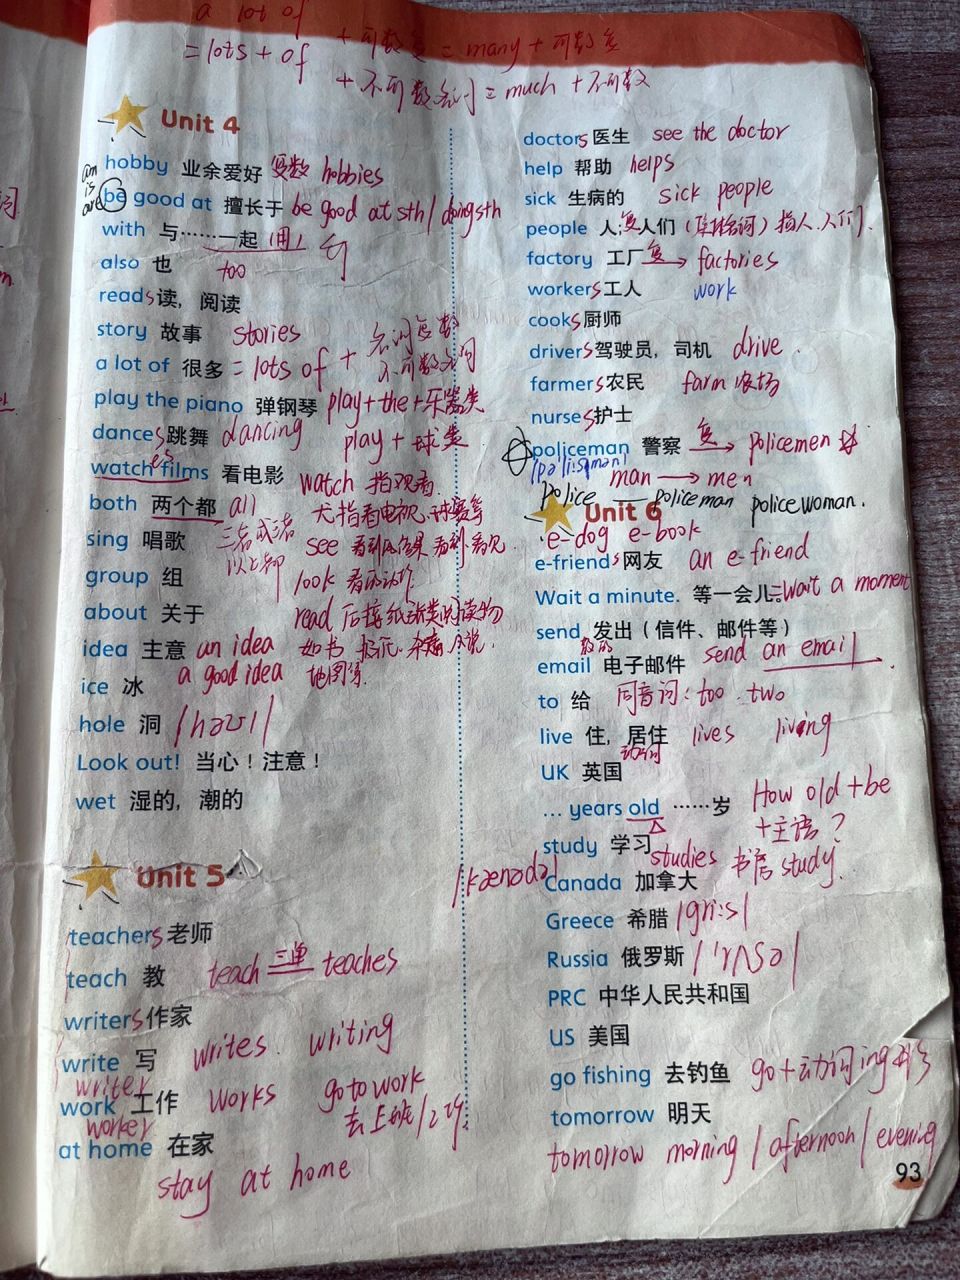 a lot of
= lots + of + 可数复 = many + 可数复
+ 不可数名词 = much + 不可数
Unit 4
hobby 业余爱好 复数 hobbies
am
is
are
be good at 擅长于 be good at sth / doing sth
with 与……一起 (用)
also 也 too
reads读，阅读
story 故事 stories
a lot of 很多 = lots of + 名词复数
不可数名词
play the piano 弹钢琴 play + the + 乐器类
dances跳舞 dancing play + 球类
watch films 看电影 watch 指观看
es
both 两个都 all 尤指看电视、球赛等
sing 唱歌 三者或三者 see
以上都
group 组 look 看的动作
about 关于 read 后接纸
idea 主意 an idea 如书
ice 冰 a good idea 地图等
hole 洞 /həʊl/
Look out! 当心！注意！
wet 湿的，潮的
Unit 5
teachers老师
teach 教 teach 三单 teaches
writers作家
write 写 writes writing
writer
work 工作 works go to work
worker 去上班/工作
at home 在家
stay at home
doctors医生 see the doctor
help 帮助 helps
sick 生病的 sick people
people 人；人们 (集体名词) 指人、人们
factory 工厂 复 → factories
workers工人 work
cooks厨师
drivers驾驶员，司机 drive
farmers农民 farm 农场
nurses护士
policeman 警察 复 → policemen
man → men
police — policeman policewoman.
Unit 6
e-dog e-book
e-friends网友 an e-friend
Wait a minute. 等一会儿。= wait a moment
send 发出（信件、邮件等）
email 电子邮件 send an email
to 给 同音词：too two
live 住，居住 lives living
动词
UK 英国
… years old ……岁 How old + be
+ 主语？
study 学习 studies 书房 study.
Canada 加拿大 /kænədə/
Greece 希腊 /gri:s/
Russia 俄罗斯 /ˈrʌʃə/
PRC 中华人民共和国
US 美国
go fishing 去钓鱼 go + 动词ing形式
tomorrow 明天
tomorrow morning / afternoon / evening
93